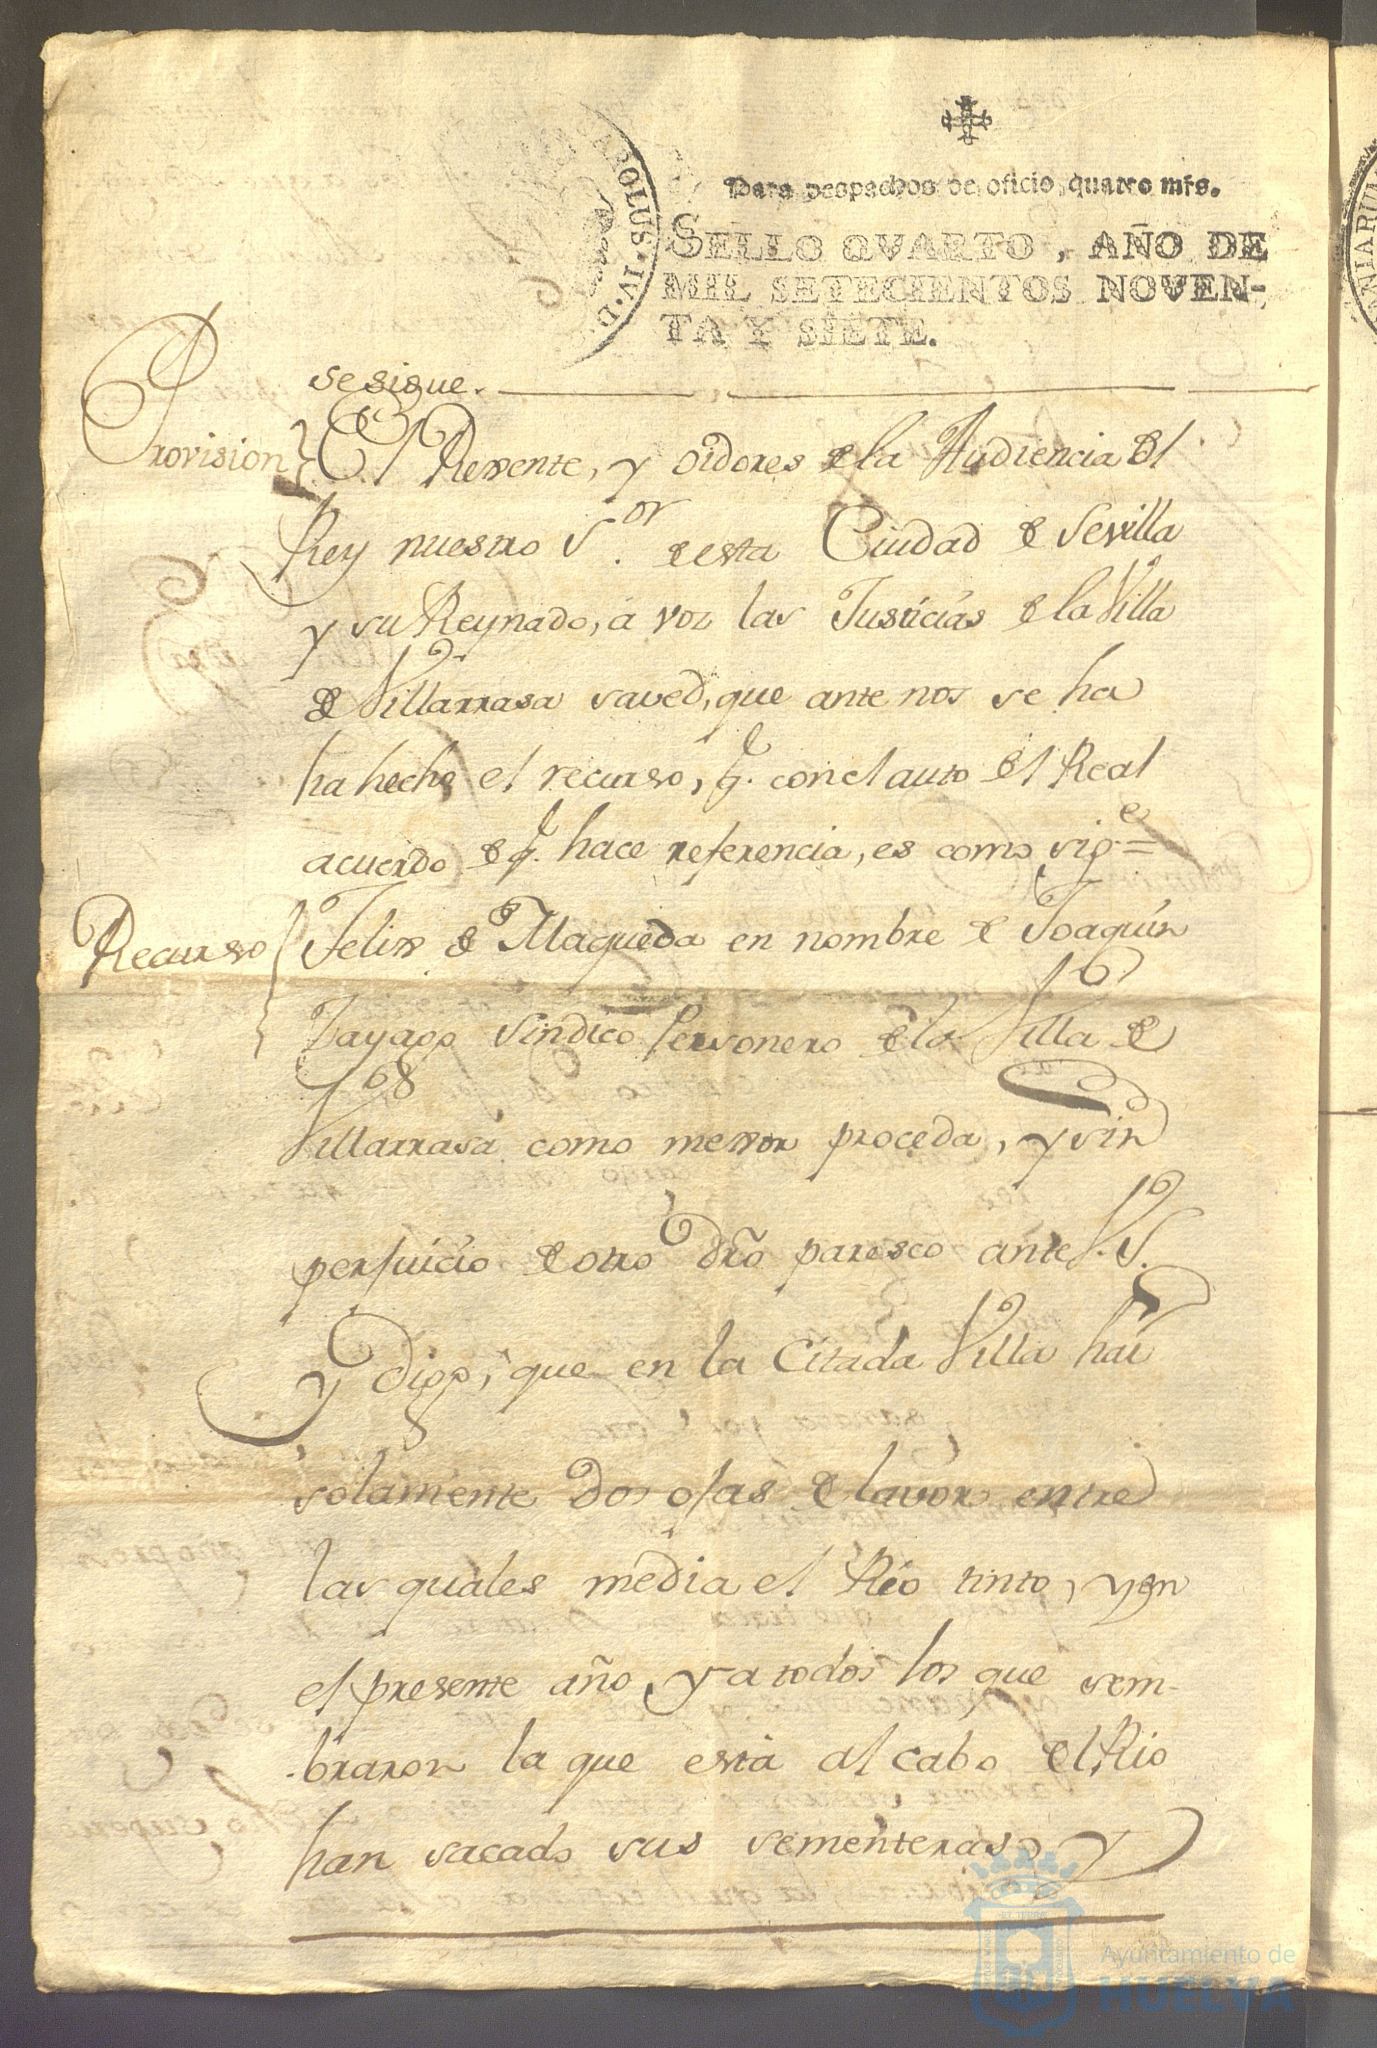 Para despachos de oficio quatro mrs.
CAROLUS · IV · D ·
SELLO QVARTO, AÑO DE
MIL SETECIENTOS NOVEN-
TA Y SIETE.
se sigue.
Provision
El Rexente, y oidores de la Audiencia del
Rey nuestro S.or de esta Ciudad de Sevilla
y su Reynado, á voz las Justicias de la Villa
de Villarrasa saved, que ante nos se ha
ha hecho el recurso, q. con el auto del Real
acuerdo de q. hace referencia, es como sig.e=
Recurso
Felix de Maqueda en nombre de Joaquin
Tayago Sindico Personero de la Villa de
Villarrasa como mexor proceda, y sin
perjuicio de otro dr̃o paresco ante V.S.
y digo, que en la Citada Villa hai
solamente dos ojas de lavor entre
las quales media el Rio tinto, y en
el presente año, y a todos los que sem-
braron la que está al cabo del Rio
han sacado sus sementeras, y
Ayuntamiento de
HUELVA